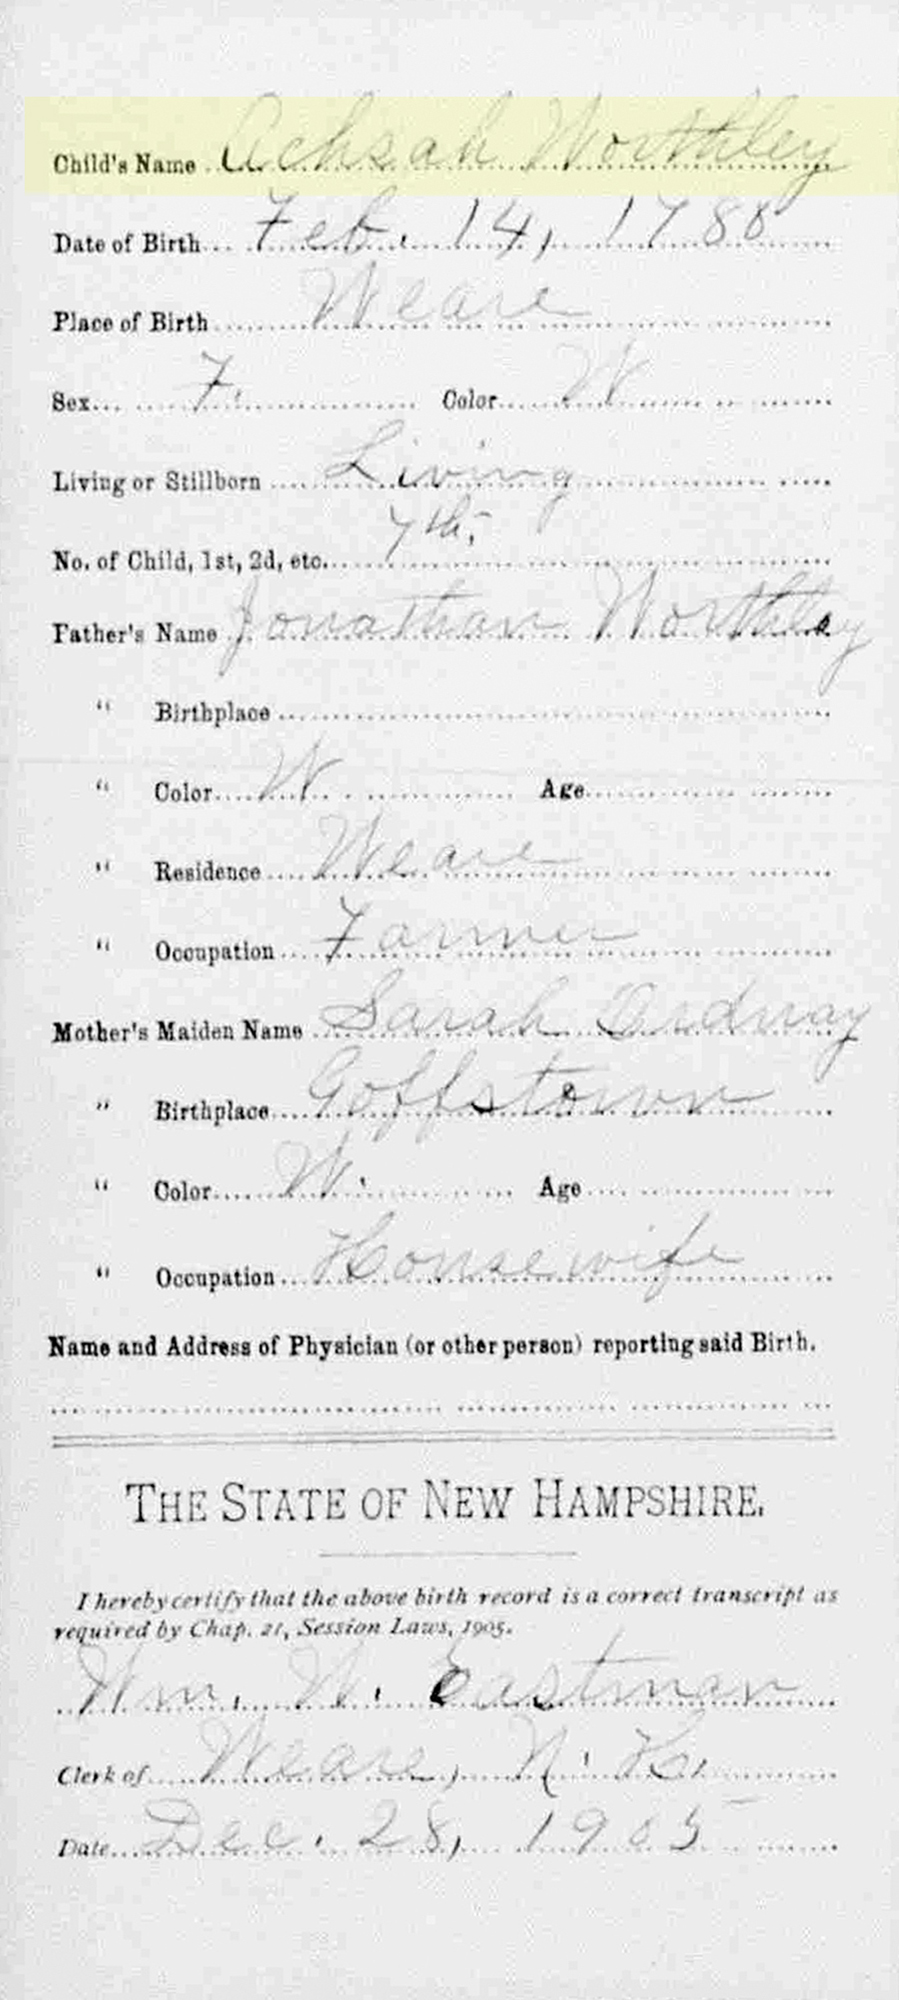 Child's Name Achsah Worthley
Date of Birth Feb. 14, 1788
Place of Birth Weare
Sex F. Color W
Living or Stillborn Living
No. of Child, 1st, 2d, etc. 7th,
Father's Name Jonathan Worthley
" Birthplace
" Color W Age
" Residence Weare
" Occupation Farmer
Mother's Maiden Name Sarah Ordway
" Birthplace Goffstown
" Color W. Age
" Occupation Housewife
Name and Address of Physician (or other person) reporting said Birth.
THE STATE OF NEW HAMPSHIRE.
I hereby certify that the above birth record is a correct transcript as
required by Chap. 21, Session Laws, 1905.
Wm. W. Eastman
Clerk of Weare, N. H.
Date Dec. 28, 1905